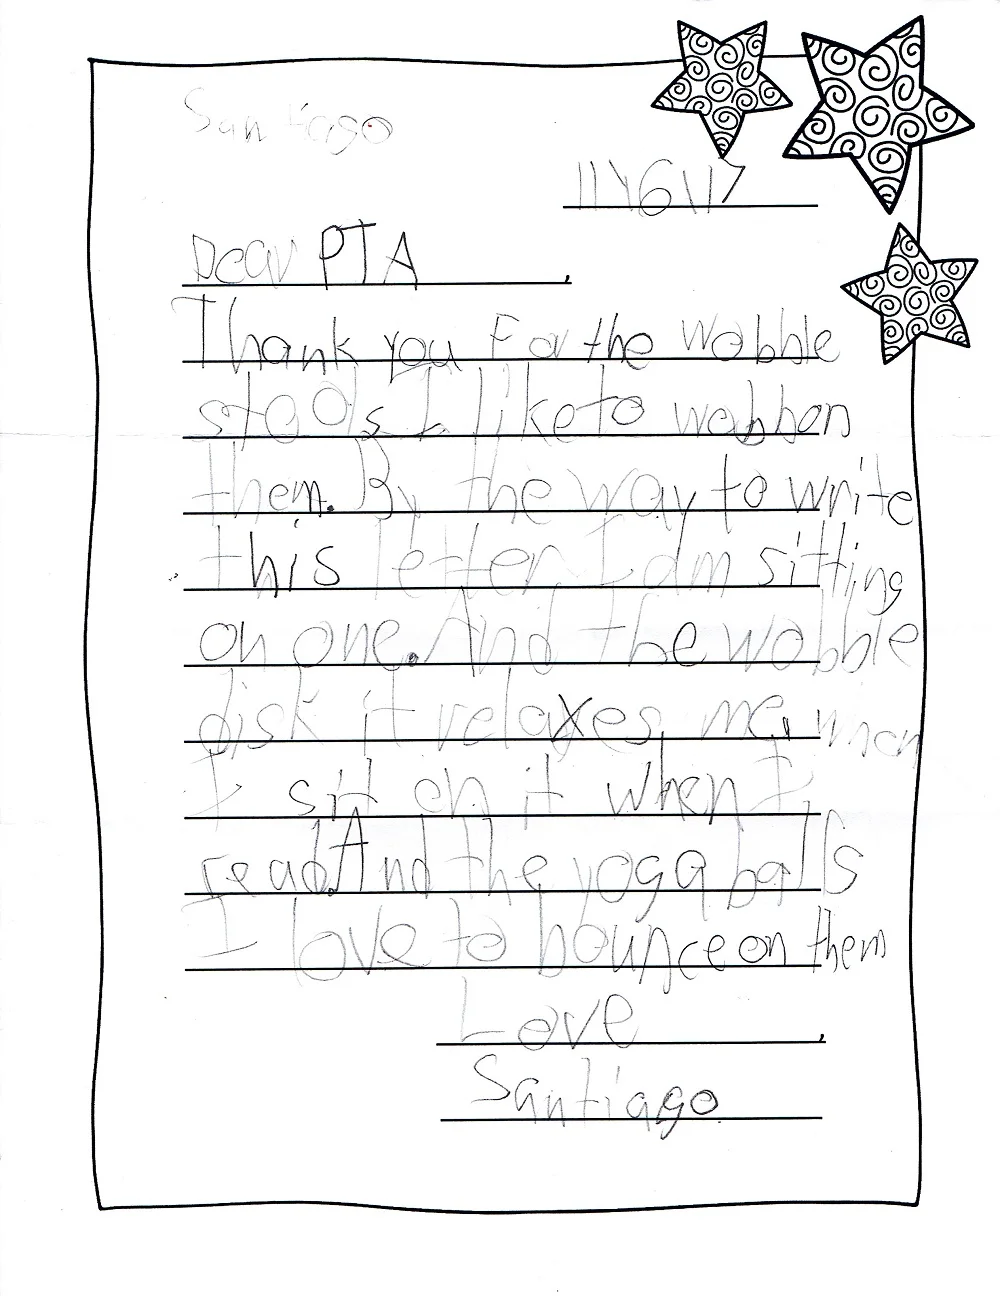 Santiago
11\6\17
Dear PTA,
Thank you For the wobble
stools I like to wobb on
them. By the way to write
this letter I am sitting
on one. And the wobble
disk it relaxes me, when
I sit on it when I
read. And the yoga balls
I love to bounce on them
Love,
Santiago